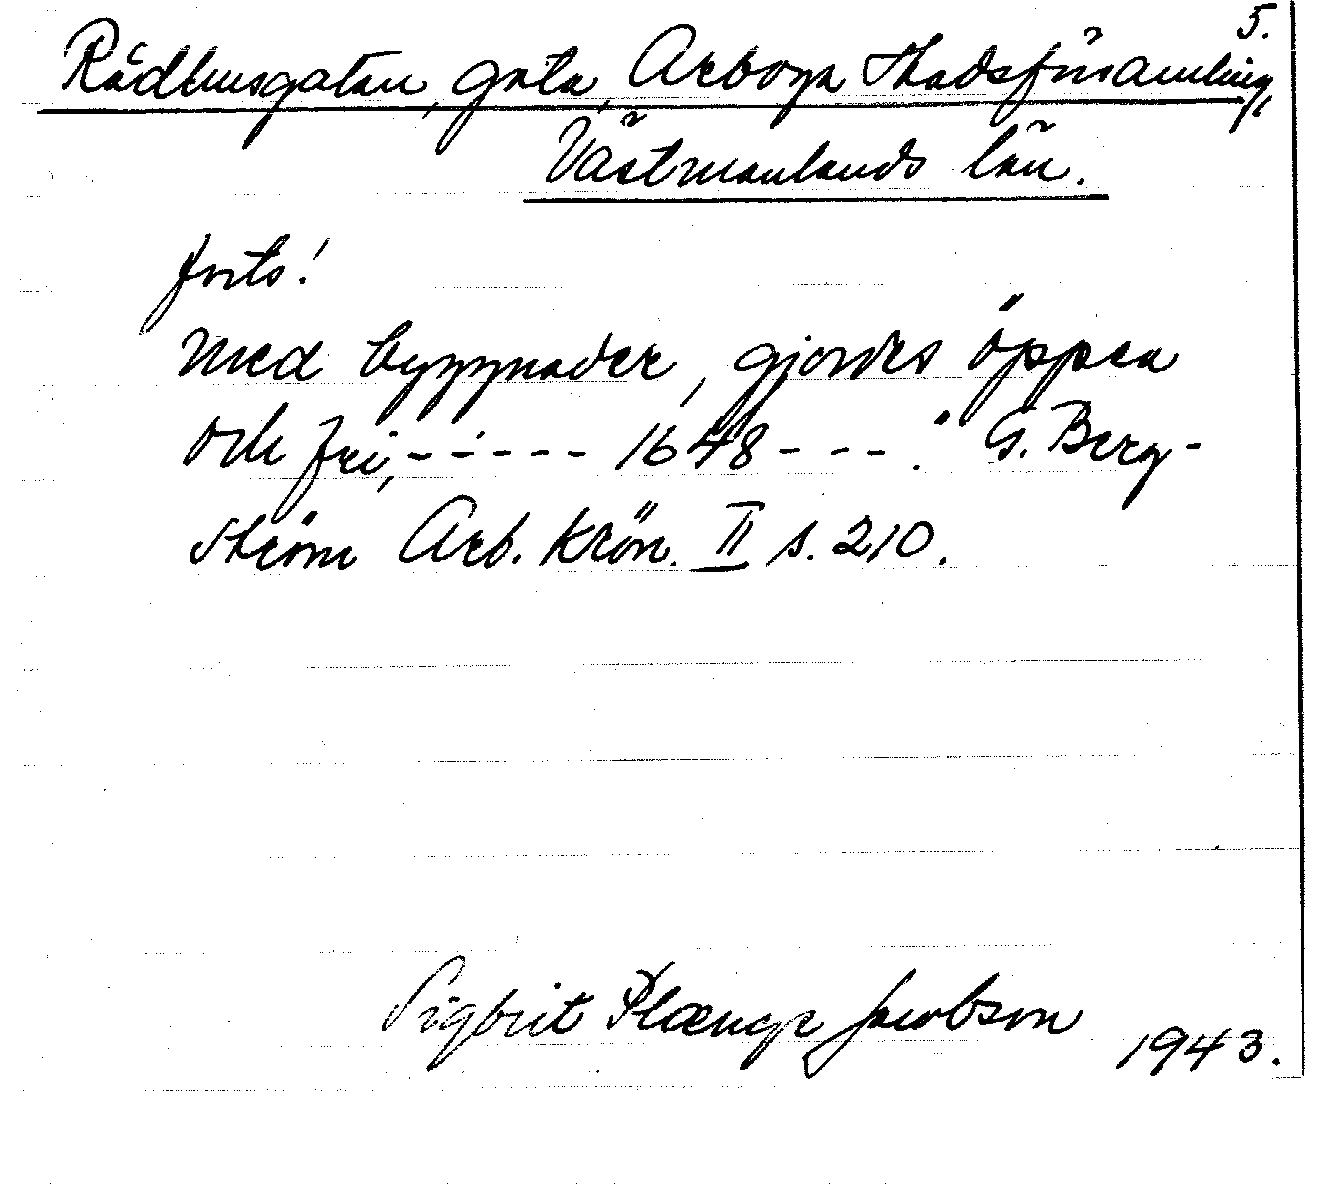 5.
Rådhusgatan, gata, Arboga Stadsförsamling,
Västmanlands län.
forts!
med byggnader, gjordes öppen
och fri, - - - - - 1648 - - - ." G. Berg-
ström Arb. Krön. II s. 210.
Sigbrit Plænge Jacobson
1943.